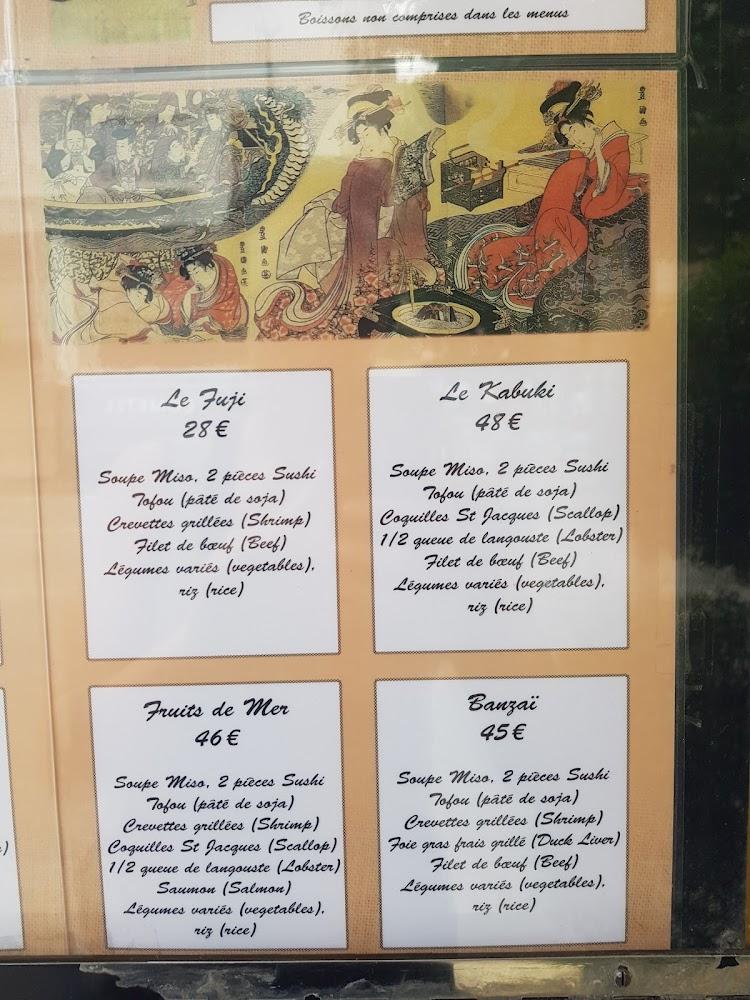 Boissons non comprises dans les menus
豊国画
豊國画
豊國画
Le Fuji
28€
Soupe Miso, 2 pièces Sushi
Tofou (pâté de soja)
Crevettes grillées (Shrimp)
Filet de bœuf (Beef)
Légumes variés (vegetables),
riz (rice)
Le Kabuki
48€
Soupe Miso, 2 pièces Sushi
Tofou (pâté de soja)
Coquilles St Jacques (Scallop)
1/2 queue de langouste (Lobster)
Filet de bœuf (Beef)
Légumes variés (vegetables),
riz (rice)
Fruits de Mer
46€
Soupe Miso, 2 pièces Sushi
Tofou (pâté de soja)
Crevettes grillées (Shrimp)
Coquilles St Jacques (Scallop)
1/2 queue de langouste (Lobster)
Saumon (Salmon)
Légumes variés (vegetables),
riz (rice)
Banzaï
45€
Soupe Miso, 2 pièces Sushi
Tofou (pâté de soja)
Crevettes grillées (Shrimp)
Foie gras frais grillé (Duck Liver)
Filet de bœuf (Beef)
Légumes variés (vegetables),
riz (rice)